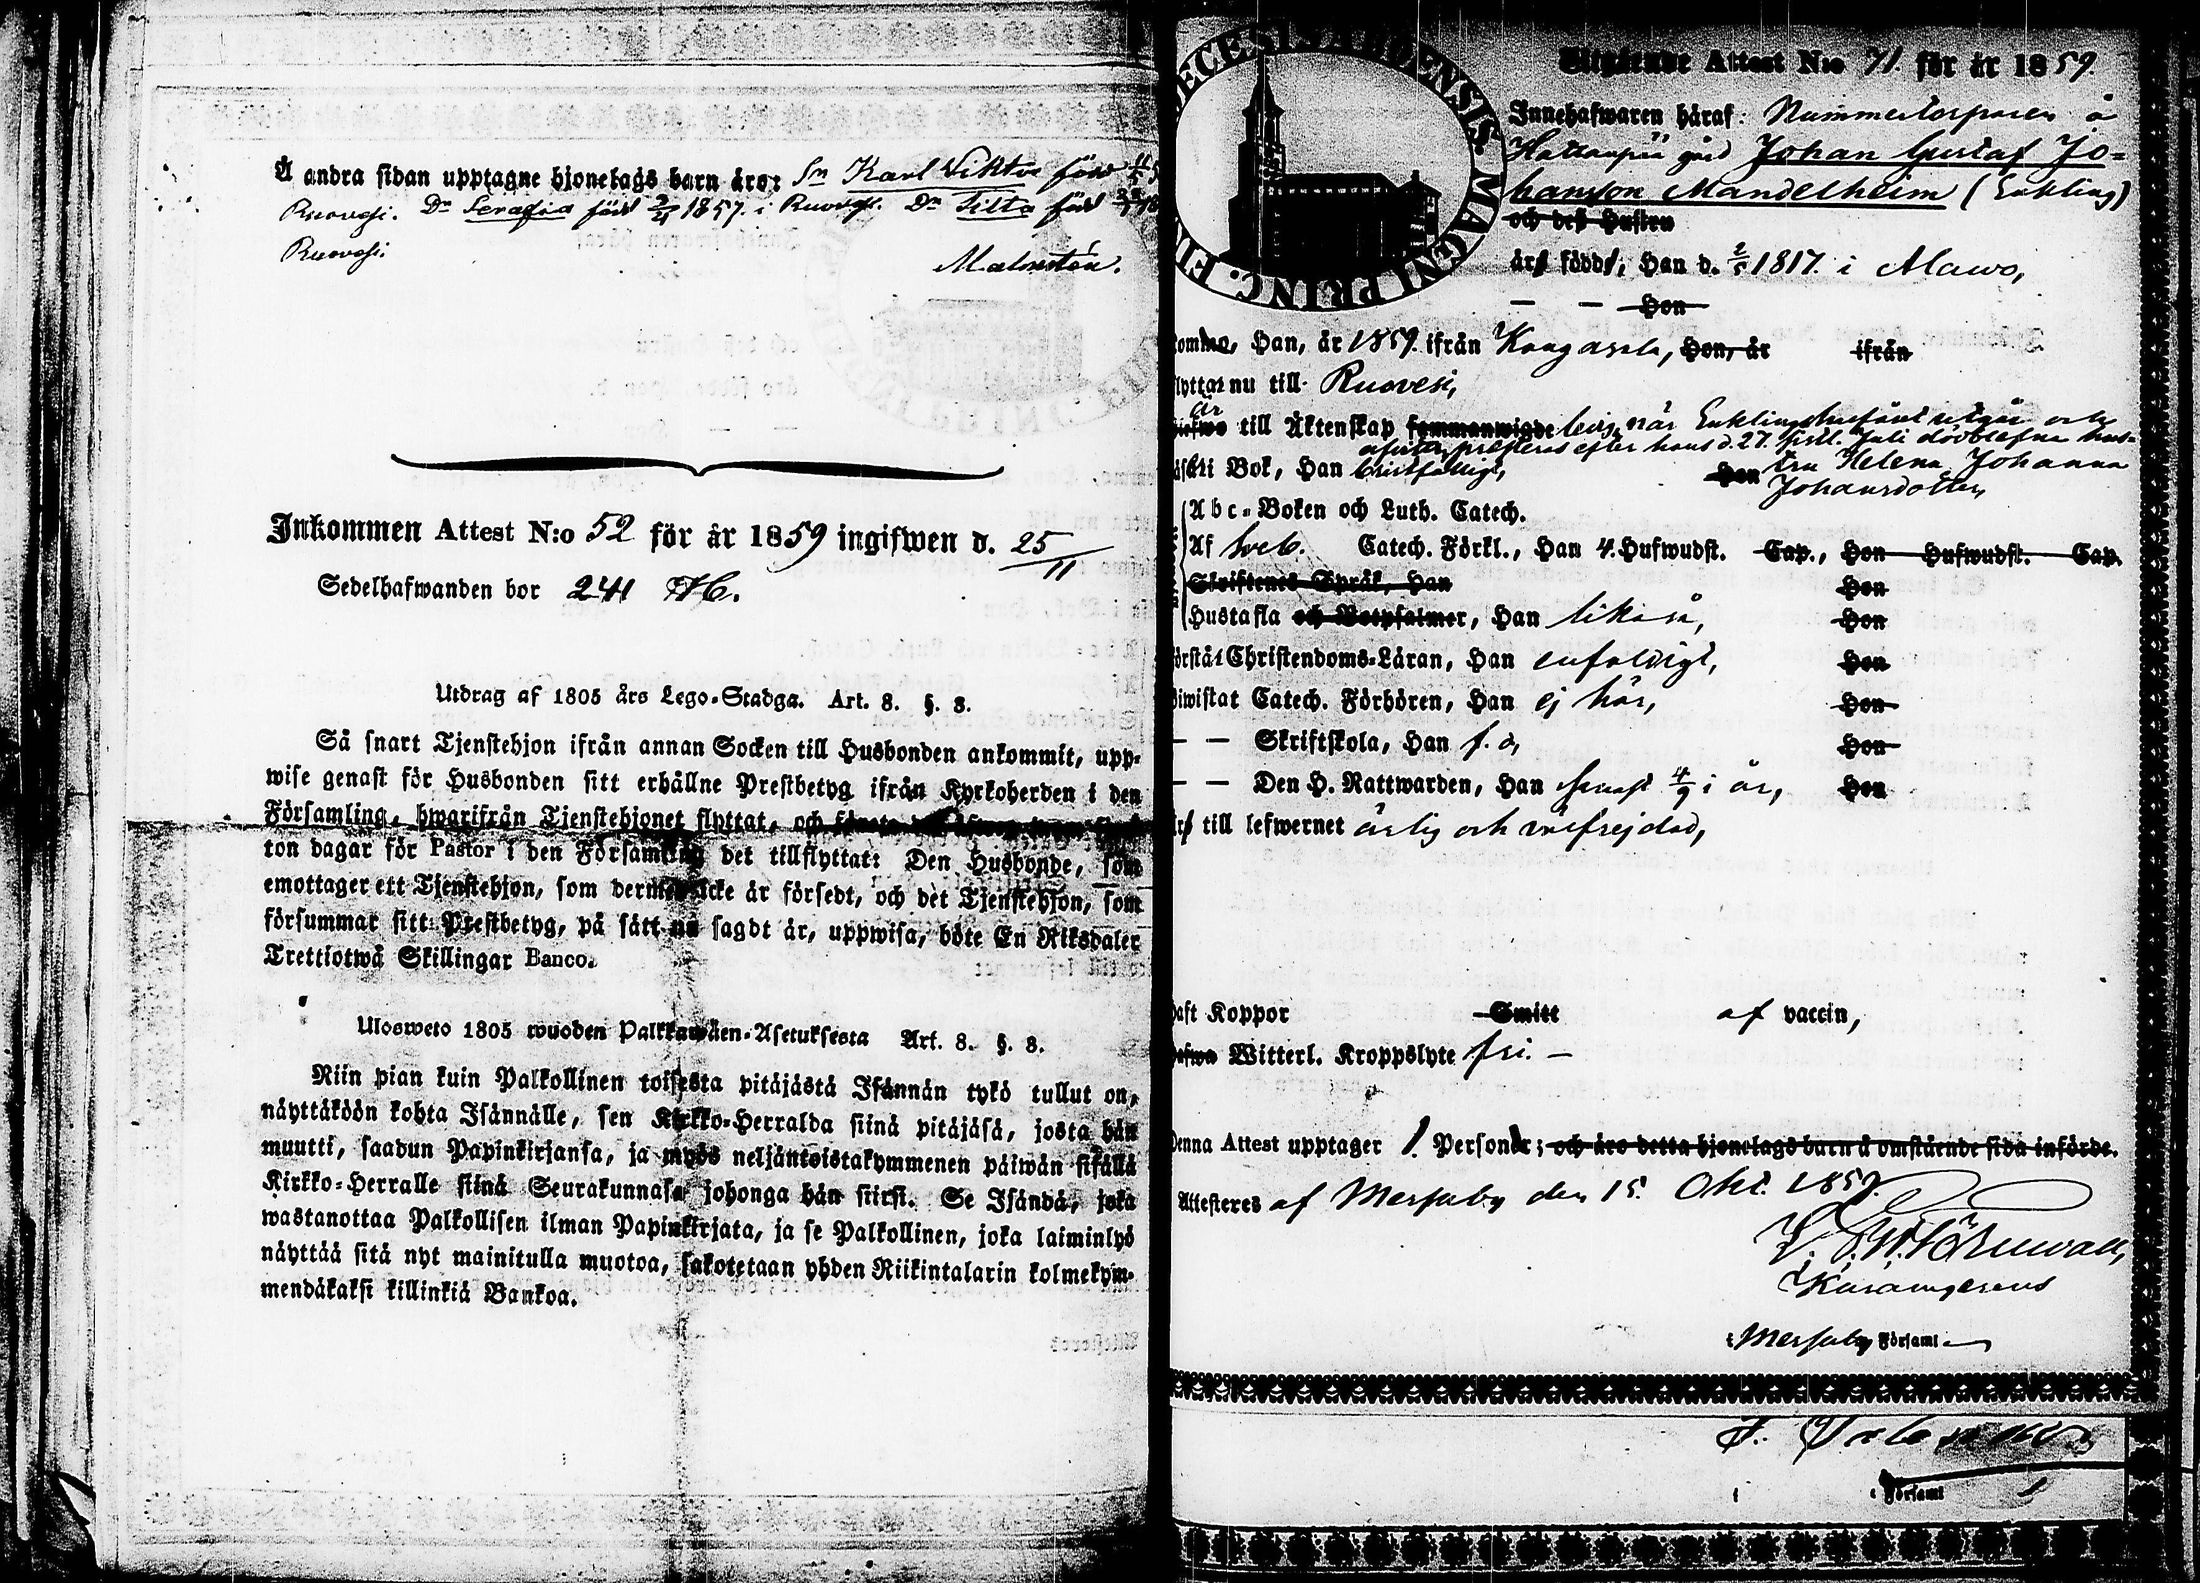 Å andra sidan upptagne hjonelags barn äro: Sn Karl Viktor född
Ruovesi. Dr Serafia född 1857. i Ruovesi. Dr Tilta född
Ruovesi.
Malmstén.
Inkommen Attest N:o 52 för år 1859 ingifwen d. 25/11
Sedelhafwanden bor 241 H.
Utdrag af 1805 års Lego-Stadga. Art. 8. §. 8.
Så snart Tjenstehjon ifrån annan Socken till Husbonden ankommit, upp-
wise genast för Husbonden sitt erhållne Prestbetyg ifrån Kyrkoherden i den
Församling, hwarifrån Tjenstehjonet flyttat, och
ton dagar för Pastor i den Församling det tillflyttat: Den Husbonde, som
emottager ett Tjenstehjon, som dermed icke är försedt, och det Tjenstehjon, som
försummar sitt Prestbetyg, på sätt nu sagdt är, uppwisa, böte En Riksdaler
Trettiotwå Skillingar Banco.
Ulosweto 1805 wuoden Palkkawäen-Asetuksesta Art. 8. §. 8.
Niin pian kuin Palkollinen toisesta pitäjästä Isännän tykö tullut on,
näyttäköön kohta Isännälle, sen Kirkko-Herralda siinä pitäjäsä, josta hän
muutti, saadun Papinkirjansa, ja myös neljäntoistakymmenen päiwän sisällä
Kirkko-Herralle siinä Seurakunnasa johonga hän siirsi. Se Isändä, joka
wastanottaa Palkollisen ilman Papinkirjata, ja se Palkollinen, joka laiminlyö
näyttää sitä nyt mainitulla muotoa, sakotetaan yhden Riikintalarin kolmekym-
mendäkaksi killinkiä Bankoa.
DIECESIS ABOENSIS MAGNI PRINC. FIN
Utgående Attest N:o 71. för år 1859.
Innehafwaren häraf: Nummertorparen å
Hattanpää gård Johan Gustaf Jo-
hansson Mandelheim (Enkling)
och dess Hustru
äro födde, Han d. 2/5 1817. i Mawo,
— — Hon
komne, Han, år 1859. ifrån Kangasala, Hon, år ifrån
flyttar nu till Ruovesi,
är
till Äktenskap sammanwigde ledig, när Enklingsåret utgår och
afvittr. presteras efter hans d. 27. sistl. Juli dödblefna hus-
i Bok, Han bristfälligt, Hon tru Helena Johanna
Johansdotter,
Abc-Boken och Luth. Catech.
Af Sveb. Catech. Förkl., Han 4. Hufwudst. Cap., Hon Hufwudst. Cap.
Skriftenes Språk, Han Hon
Hustafla och Botpsalmer, Han likaså, Hon
Förstå Christendoms-Läran, Han enfaldigt, Hon
Biwistat Catech. Förhören, Han ej här, Hon
— — Skriftskola, Han f. d, Hon
— — Den H. Nattwarden, Han senast 4/9 i år, Hon
äro till lefwernet ärlig och välfrejdad,
haft Koppor Smitt af vaccin,
Hafwa Witterl. Kroppslyte fri. —
Denna Attest upptager 1. Person; och äro detta hjonelags barn å omstående sida införde.
Attesteras af Messuby den 15. Okt. 1859.
i Messuby Församl.
i Församl